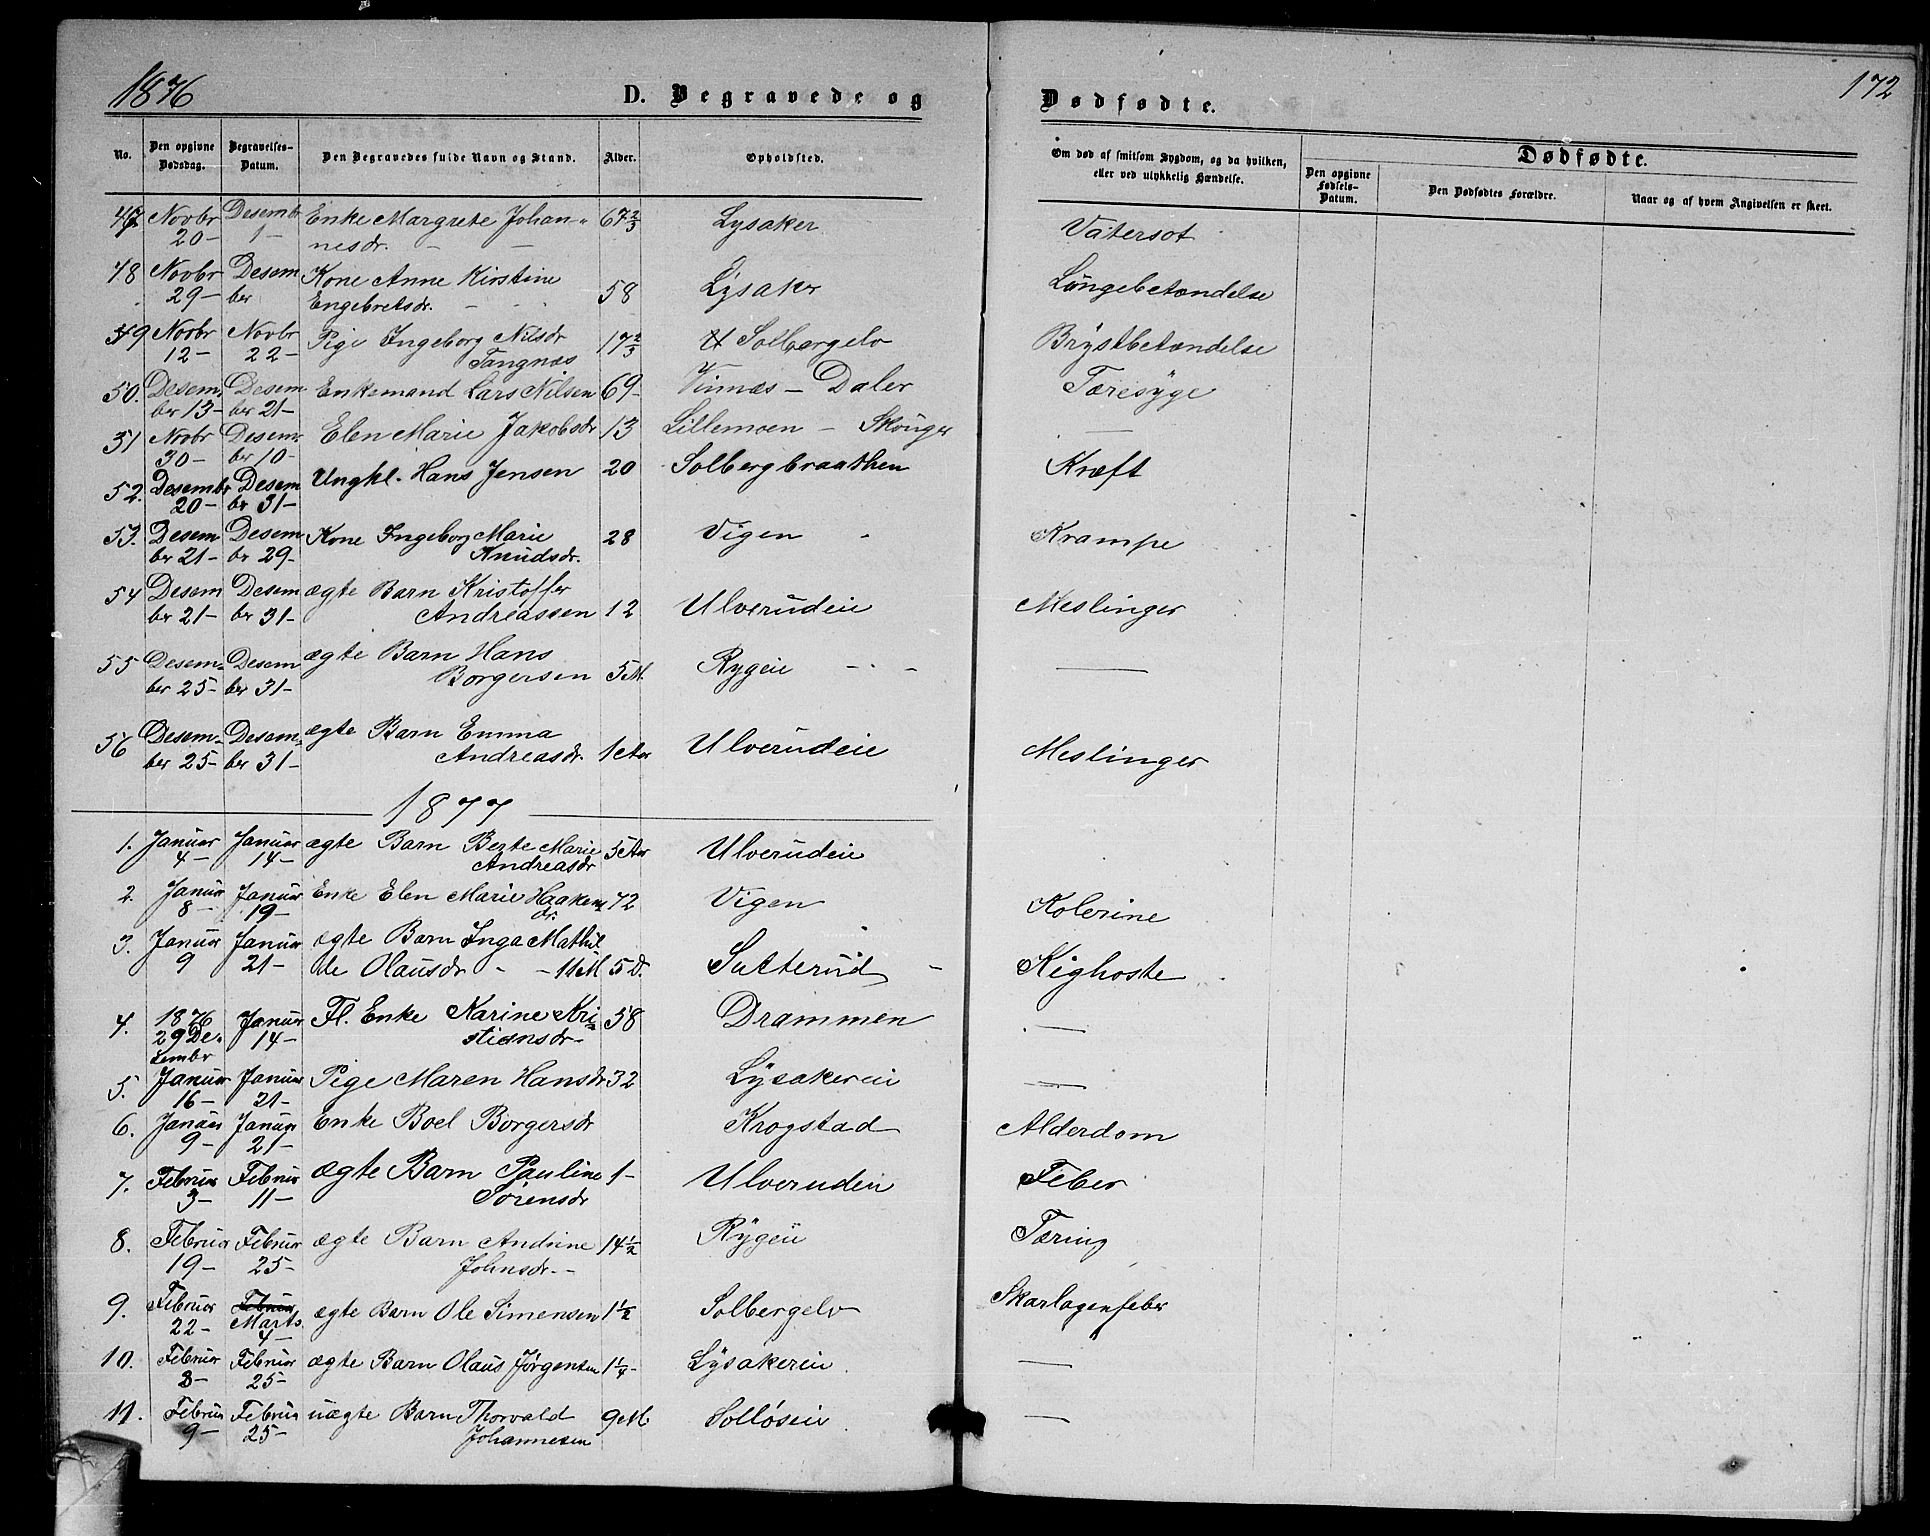 1876
D. Begravede og
Dødfødte.
172
No. Den opgivne Dødsdag. Begravelses-Datum. Den Begravedes fulde Navn og Stand. Alder. Opholdsted. Om død af smitsom Sygdom, og da hvilken, eller ved ulykkelig Hændelse. Dødfødte. Den opgivne Fødsels-Datum. Den Dødfødtes Forældre. Naar og af hvem Angivelsen er skeet.
47 Novbr Desembr Enke Margrete Johan- 67 2/3 Lysaker Vatersot
20- 1- nesdr.
48 Novbr Desem Kone Anne Kirstine 58 Lysaker Lungebetændelse
29- ber Engebretsdr.
49 Novbr Novbr Pige Ingeborg Nilsdr 17 2/3 Solbergelv Brystbetændelse
12- 22- Tangnæs
50. Desem Desem Enkemand Lars Nilsen 69- Vinnæs - Daler Tæresyge
ber 13- ber 21-
51 Novbr Desem Elen Marie Jakobsdr 13 Lillemoen - Skouger —
30- ber 10-
52. Desembr Desem Ungkl. Hans Jensen 20 Solbergbraathen Kræft
20- br 31-
53. Desem Desem Kone Ingeborg Marie 28 Vigen Krampe
ber 21- br 29- Knudsdr.
54 Desem Desem ægte Barn Kristoffer
ber 21- br 31- Andreassen 12 Ulverudeie Meslinger
55 Desem- Desem ægte Barn Hans
ber 25- ber 31- Borgersen 5 M. Rygeie —
56 Desem- Desem- ægte Barn Emma
ber 25- ber 31- Andreasdr. 1 Aar Ulverudeie Meslinger
1877
1. Januar Januar ægte Barn Berte Marie 5 Aar Ulverudeie
4- 14- Andreasdr
2. Januar Januar Enke Elen Marie Haakens 72 Vigen Kolerine
8- 19- dr.
3. Januar Januar ægte Barn Inga Mathil
9 21- de Olausdr - - 11 M 5 D. Sutterud - Kighoste
4. 1876 Januar Fl. Enke Karine Kri 58 Drammen —
29 De- 14- stiansdr-
sembr
5. Januar Januar Pige Maren Hansdr 32 Lysakereie —
16- 21-
6. Januar Januar Enke Boel Borgersdr Krogstad Alderdom
9- 21-
7. Februar Februar ægte Barn Pauline 1- Ulverudeie Feber
3- 11- Sørensdr
8. Februar Februar ægte Barn Andrine 14 1/2 Rygeie Tæring
19- 25- Johnsdr.-
9. Februar Februar ægte Barn Ole Simensen 1 1/2 Solbergelv Skarlagenfeber
22- Marts
4-
10. Februar Februar ægte Barn Olaus Jørgensen 1 1/4- Lysakereie —
3- 25-
11. Februar Februar uægte Barn Thorvald 9 M. Solløseie —
9- 25- Johannesen